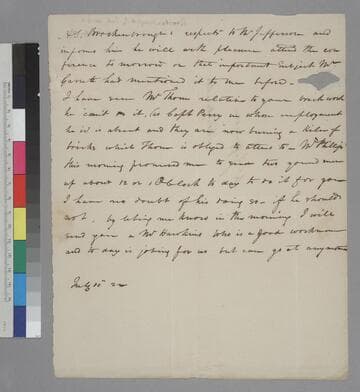 A S. Brockenbrough's respects to Mr Jefferson and
informs him he will with pleasure attend the con
ference to morrow on that important subject Mr
Garrett had mentioned it to me before –
I have seen Mr Thorn relative to your brick work
he can't do it, as Capt Perry in whose employment
he is is absent and they are now burning a kiln of
bricks which Thorn is obliged to attend to – Mr Phillips
this morning promised me to send two good men
up about 12 or 1 OClock to day to do it for you
I have no doubt of his doing so – if he should
not, by leting me know in the morning I will
send you a Mr Hawkins who is a good workman
and to day is jobing for us but can go at any time
July 22